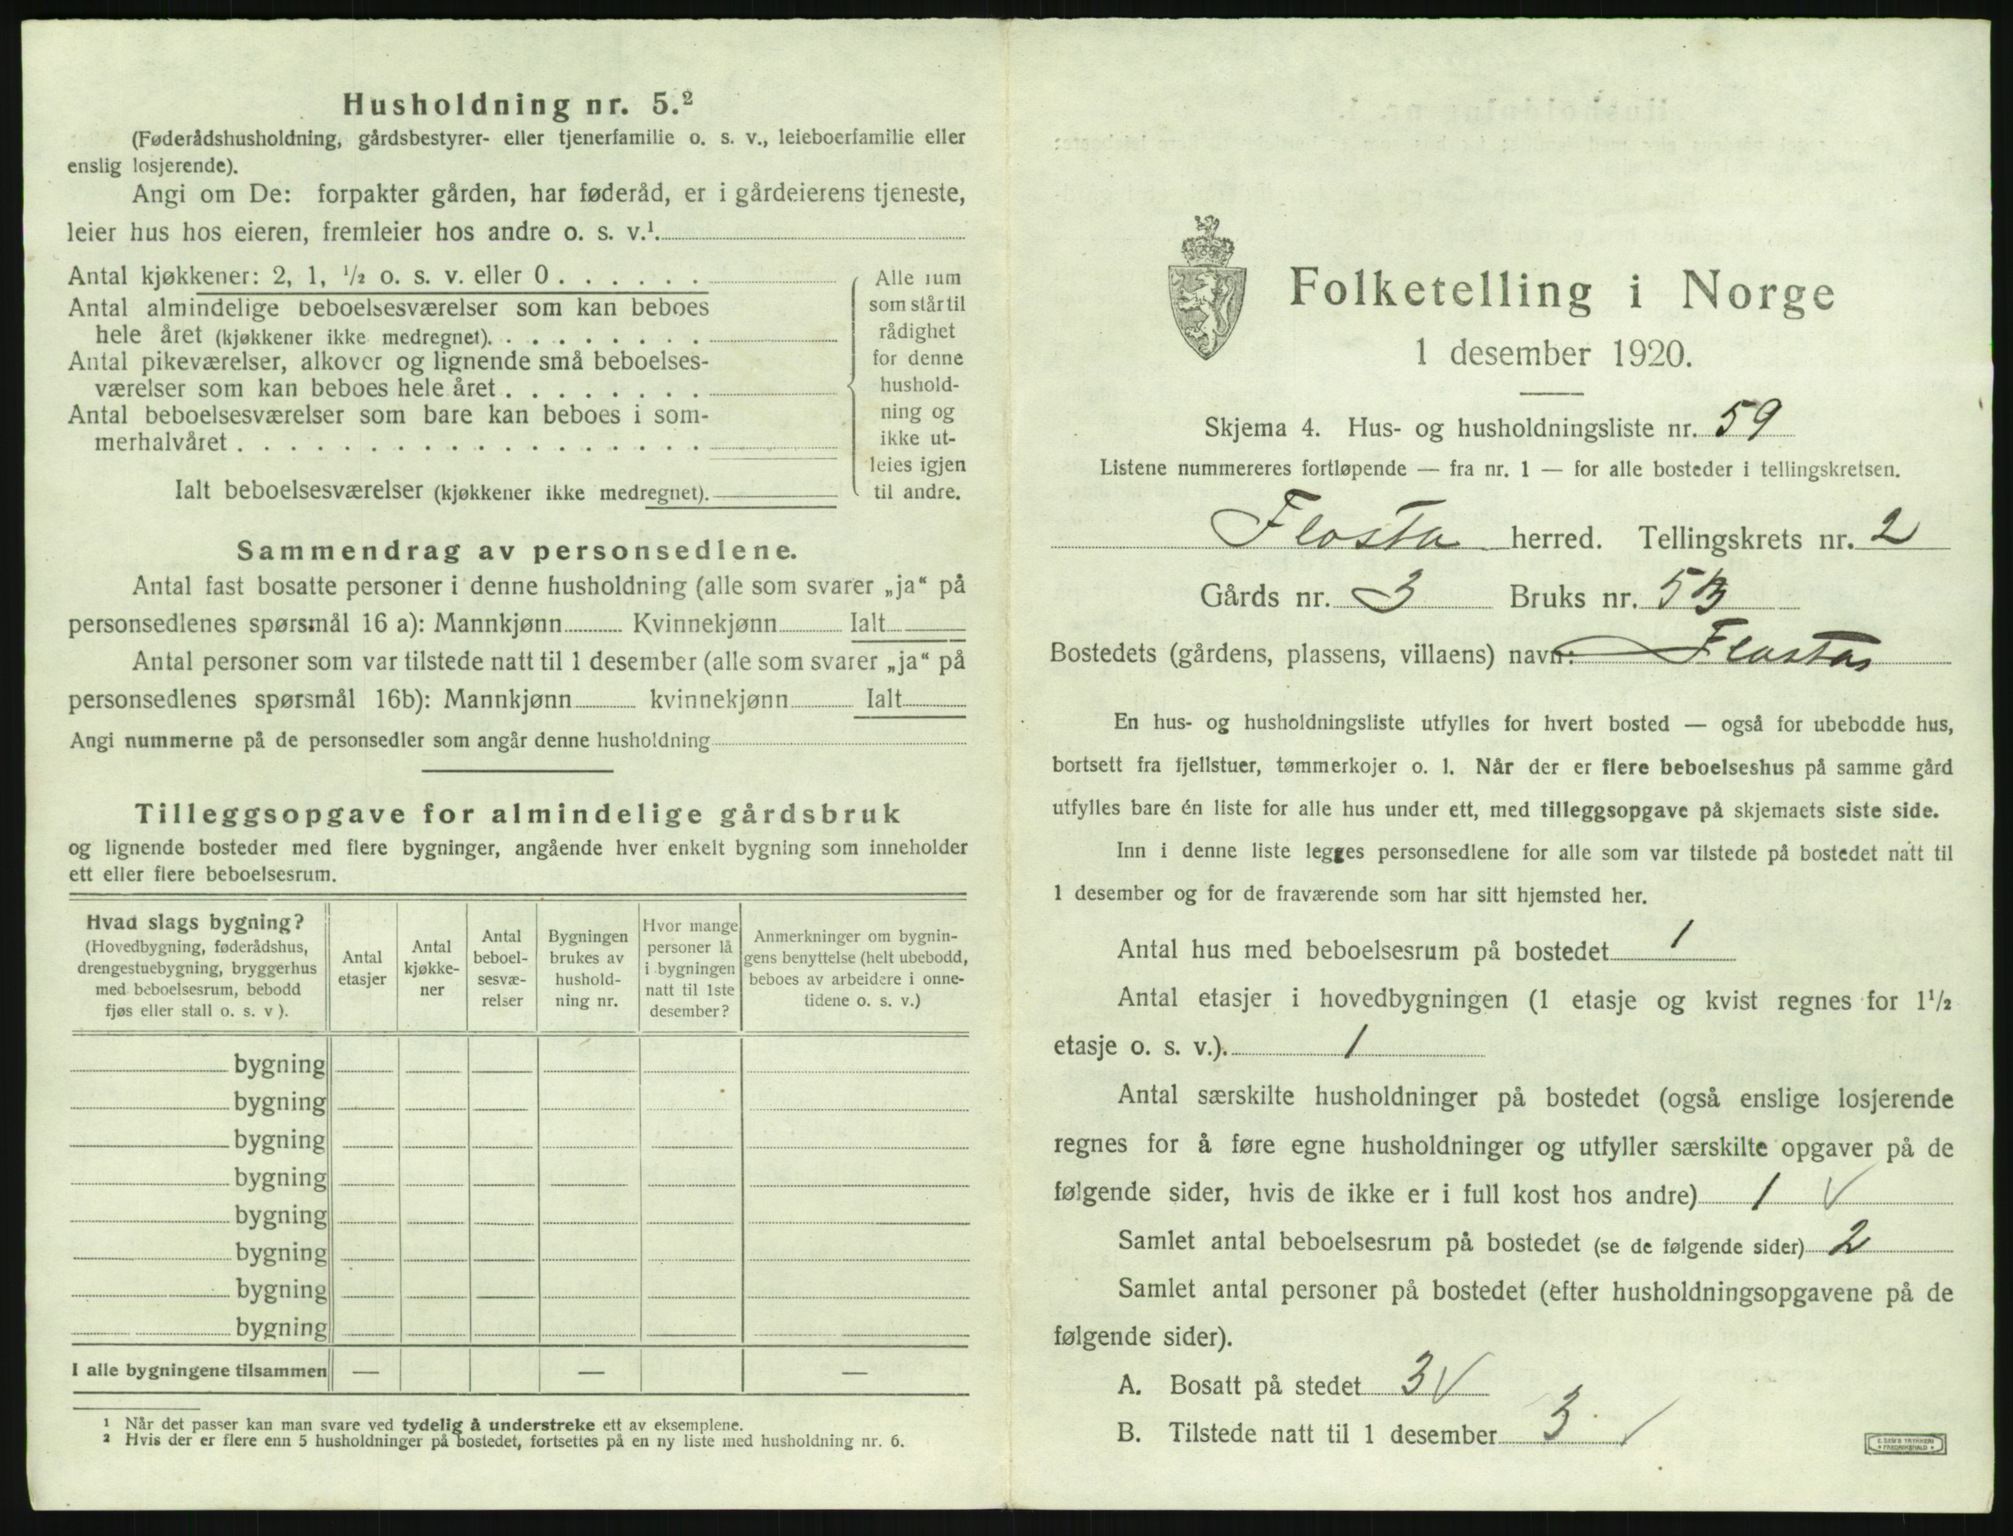 Husholdning nr. 5.²
(Føderådshusholdning, gårdsbestyrer- eller tjenerfamilie o. s. v., leieboerfamilie eller
enslig losjerende).
Angi om De: forpakter gården, har føderåd, er i gårdeierens tjeneste,
leier hus hos eieren, fremleier hos andre o. s. v.¹.
Antal kjøkkener: 2, 1, ½ o. s. v. eller 0 . . . . . .
Antal almindelige beboelsesværelser som kan beboes
hele året (kjøkkener ikke medregnet). . . . . . . . .
Antal pikeværelser, alkover og lignende små beboelses-
værelser som kan beboes hele året . . . . . . . .
Antal beboelsesværelser som bare kan beboes i som-
merhalvåret . . . . . . . . . . . . . . . . . .
Ialt beboelsesværelser (kjøkkener ikke medregnet).
Alle rum
som står til
rådighet
for denne
hushold-
ning og
ikke ut-
leies igjen
til andre.
Sammendrag av personsedlene.
Antal fast bosatte personer i denne husholdning (alle som svarer „ja“ på
personsedlenes spørsmål 16 a): Mannkjønn Kvinnekjønn Ialt
Antal personer som var tilstede natt til 1 desember (alle som svarer „ja“ på
personsedlenes spørsmål 16b): Mannkjønn kvinnekjønn Ialt
Angi nummerne på de personsedler som angår denne husholdning
Tilleggsopgave for almindelige gårdsbruk
og lignende bosteder med flere bygninger, angående hver enkelt bygning som inneholder
ett eller flere beboelsesrum.
Hvad slags bygning?
(Hovedbygning, føderådshus,
drengestuebygning, bryggerhus
med beboelsesrum, bebodd
fjøs eller stall o. s. v ).
Antal
etasjer
Antal
kjøkke-
ner
Antal
beboel-
sesvæ-
relser
Bygningen
brukes av
hushold-
ning nr.
Hvor mange
personer lå
i bygningen
natt til 1ste
desember?
Anmerkninger om bygnin-
gens benyttelse (helt ubebodd,
beboes av arbeidere i onne-
tidene o. s. v.)
bygning
bygning
bygning
bygning
bygning
bygning
bygning
bygning
I alle bygningene tilsammen — — —
¹ Når det passer kan man svare ved tydelig å understreke ett av eksemplene.
² Hvis der er flere enn 5 husholdninger på bostedet, fortsettes på en ny liste med husholdning nr. 6.
Folketelling i Norge
1 desember 1920.
Skjema 4. Hus- og husholdningsliste nr. 59
Listene nummereres fortløpende — fra nr. 1 — for alle bosteder i tellingskretsen.
Flosta herred. Tellingskrets nr. 2
Gårds nr. 3 Bruks nr. 53
Bostedets (gårdens, plassens, villaens) navn: Flosta
En hus- og husholdningsliste utfylles for hvert bosted — også for ubebodde hus,
bortsett fra fjellstuer, tømmerkojer o. l. Når der er flere beboelseshus på samme gård
utfylles bare én liste for alle hus under ett, med tilleggsopgave på skjemaets siste side.
Inn i denne liste legges personsedlene for alle som var tilstede på bostedet natt til
1 desember og for de fraværende som har sitt hjemsted her.
Antal hus med beboelsesrum på bostedet 1
Antal etasjer i hovedbygningen (1 etasje og kvist regnes for 1½
etasje o. s. v.). 1
Antal særskilte husholdninger på bostedet (også enslige losjerende
regnes for å føre egne husholdninger og utfyller særskilte opgaver på de
følgende sider, hvis de ikke er i full kost hos andre) 1 √
Samlet antal beboelsesrum på bostedet (se de følgende sider) 2
Samlet antal personer på bostedet (efter husholdningsopgavene på de
følgende sider).
A. Bosatt på stedet 3 √
B. Tilstede natt til 1 desember 3 √